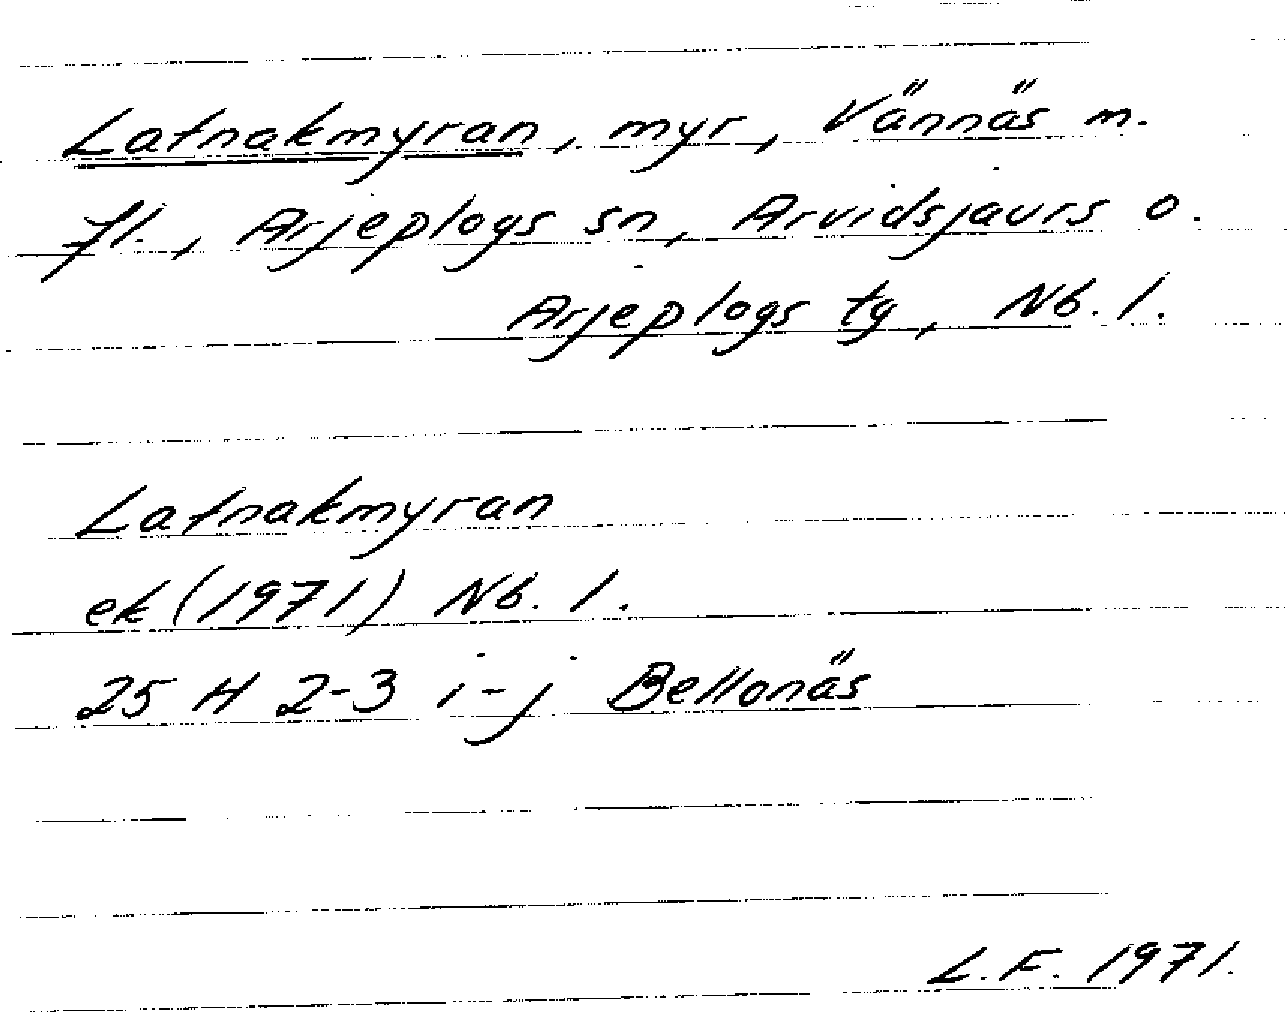 Latnakmyran, myr, Vännäs m.
fl., Arjeplogs sn, Arvidsjaurs o.
Arjeplogs tg, Nb. l.
Latnakmyran
ek (1971) Nb. l.
25 H 2-3 i-j Bellonäs
L.F. 1971.